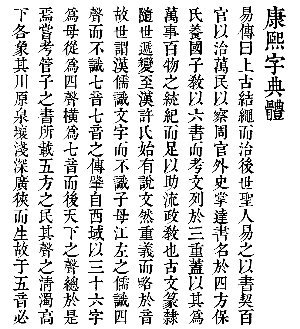 康熙字典體
易傳曰上古結繩而治後世聖人易之以書契百
官以治萬民以察周官外史掌達書名於四方保
氏養國子教以六書而考文列於三重蓋以其為
萬事百物之統紀而足以助流政教也古文篆隷
隨世遞變至漢許氏始有說文然重義而略於音
故世謂漢儒識文字而不識子母江左之儒識四
聲而不識七音七音之傳肇自西域以三十六字
爲母從爲四聲橫爲七音而後天下之聲總於是
焉嘗考管子之書所載五方之民其聲之淸濁高
下各象其川原泉壤淺深廣狹而生故于五音必